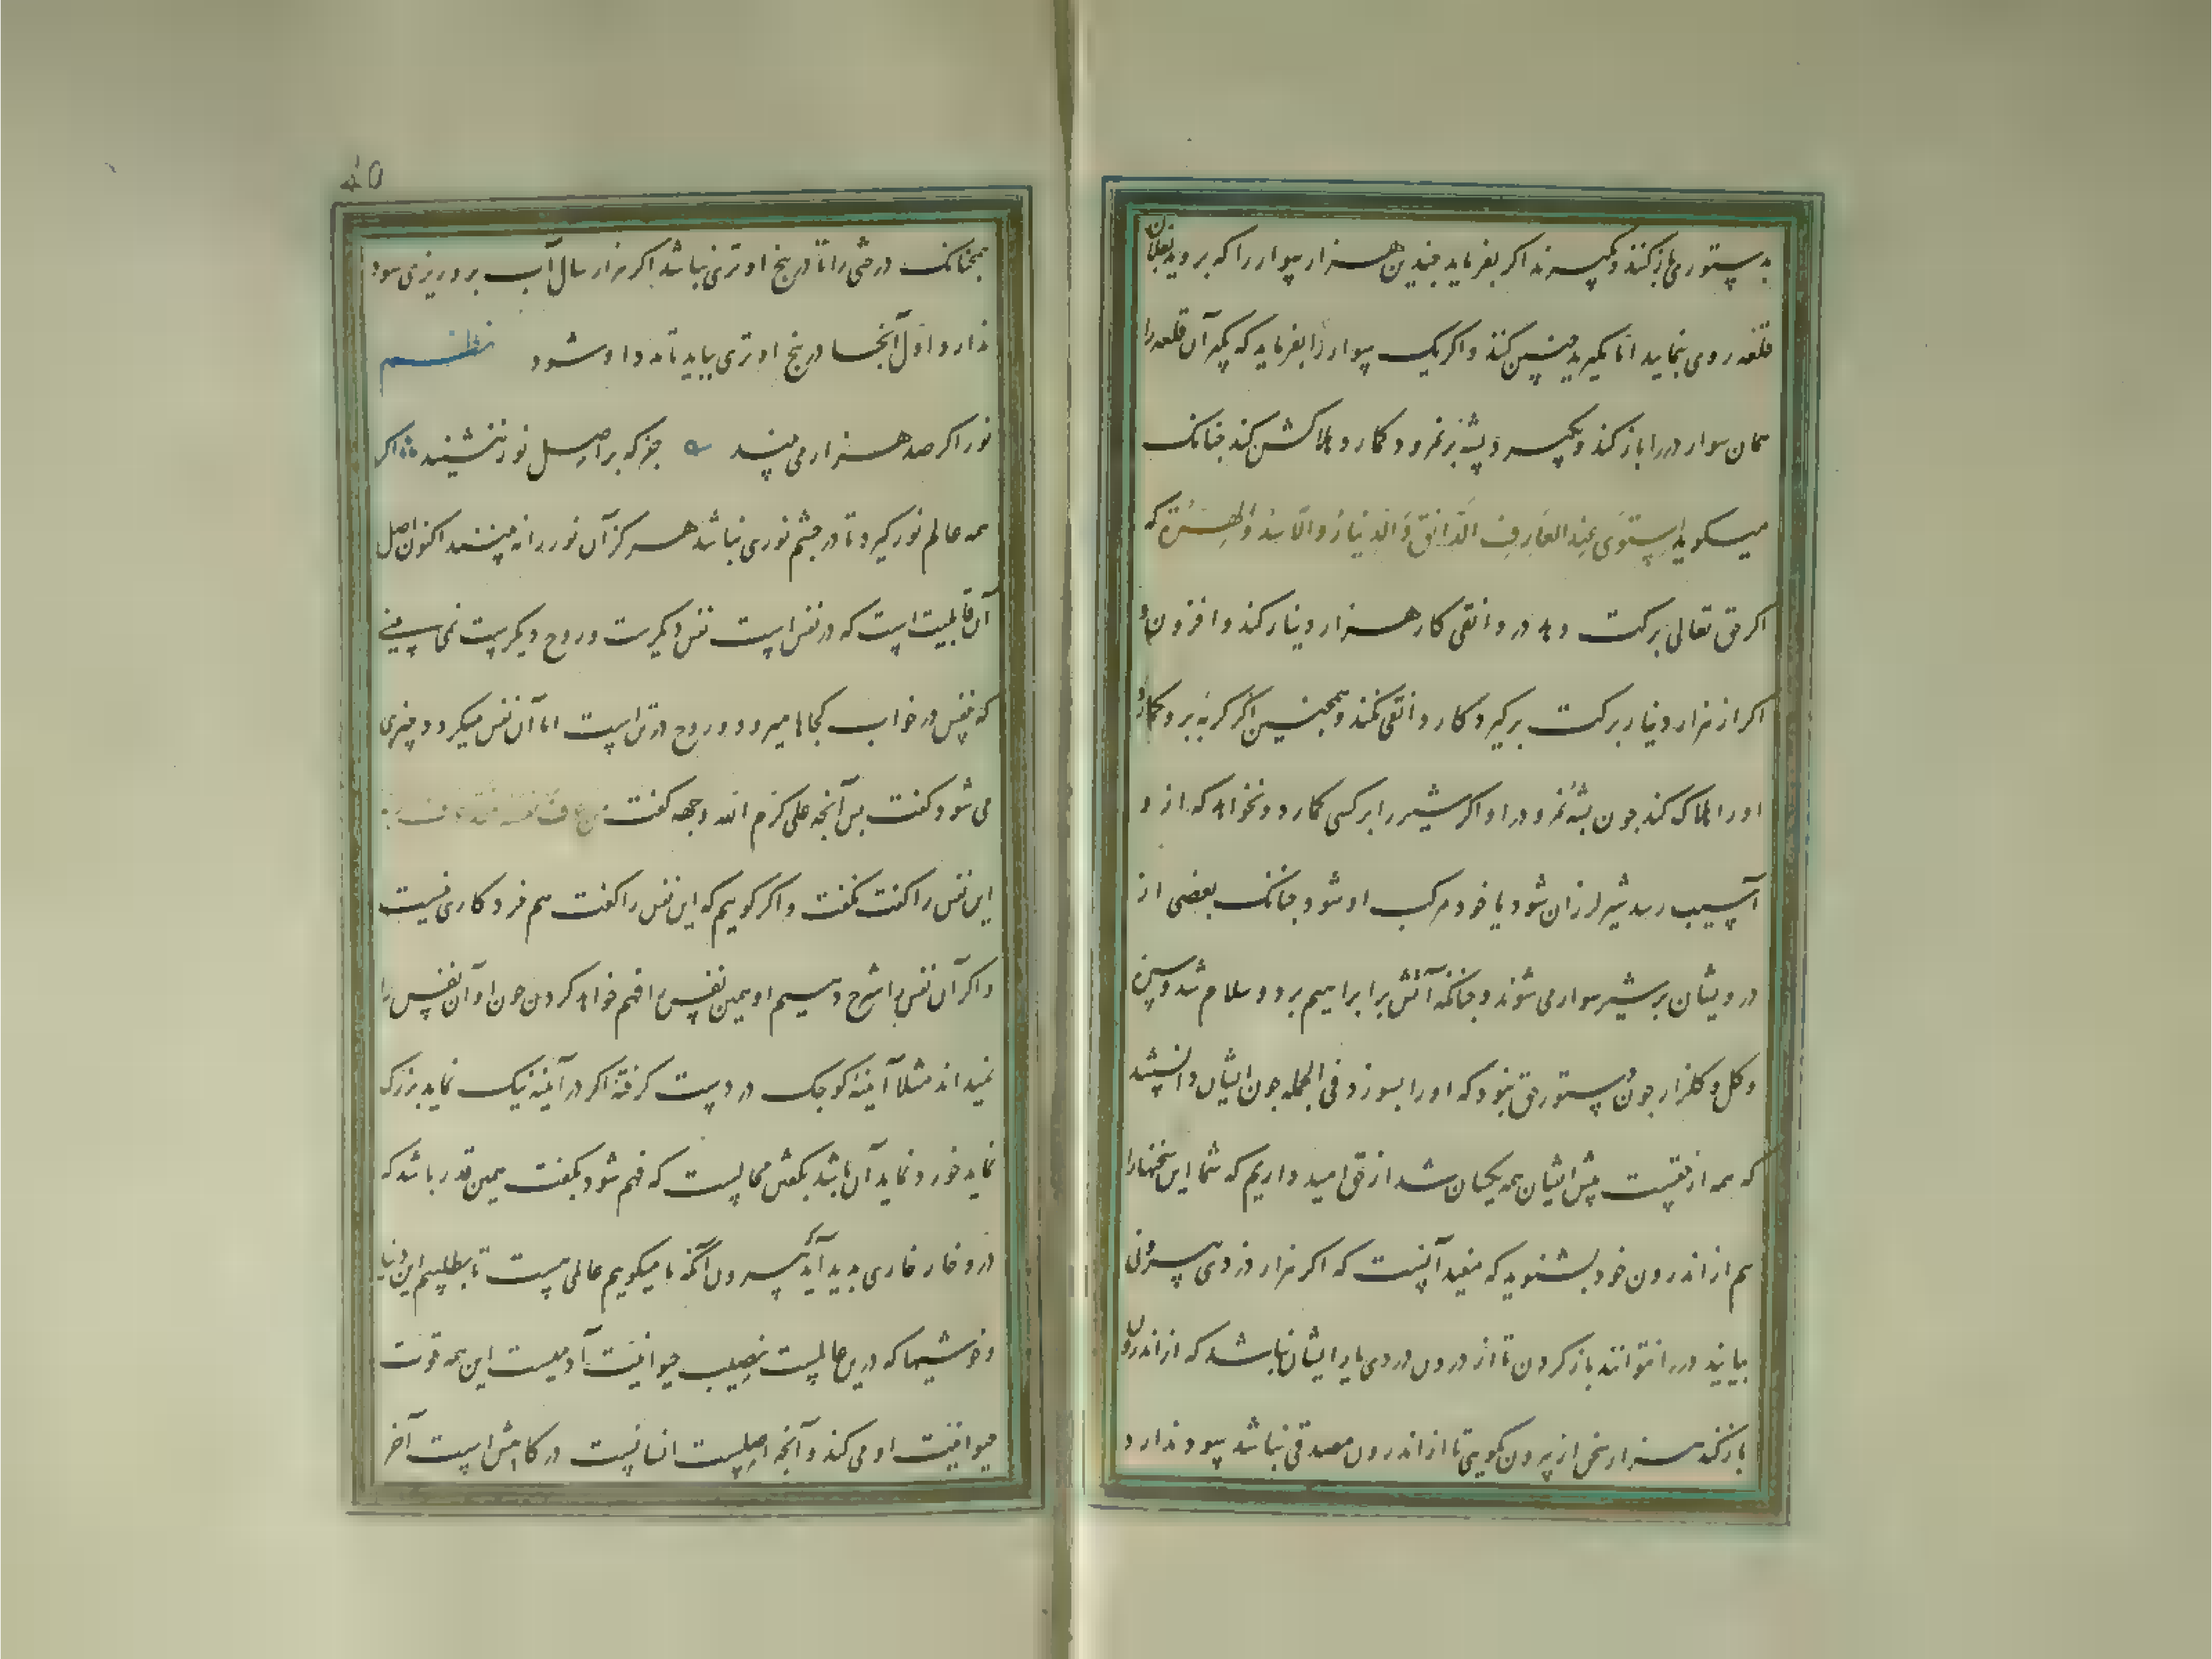 بدستوری باز کنند و بگیرند اگر بفرماید چندین هزار سوار را که بروید بفلان
قلعه روی بنمایید اما مگیرید چنین کنند و اگر یک سوار را بفرماید که بگیر آن قلعه را
همان سوار در را باز کند و بگیرد و پشه بر نمرود گمارد و هلاکش کند جنانک
میکوید اِستَوی عِندَ العَارِفِ الدَّانِق وَالدِّینَار وَالاَسَد وَالهِرَّة که
اگر حق تعالی برکت دهد در دانقی کار هزار دینار کند و افزون
اگر از هزار دینار برکت برگیرد کار دانقی نکند و همچنین اگر گربه بر و گمارد
او را هلاک کند جون پشه نمرود را و اگر شیر را بر کسی گمارد و نخواهد که از و
آسیب رسد شیر لرزان شود یا خود مرکب او شود جنانک بعضی از
درویشان بر شیر سوار می شوند و جنانکه آتش بر ابراهیم برد و سلام شد و سبزی
و گل و گلزار جون دستور حق نبود که او را بسوزد فی الجمله جون ایشان دانستند
که همه از حقیست پیش ایشان همه یکسان شد از حق امید داریم که شما این سخنها را
هم از اندرون خود بشنوید که مفید آنست که اگر هزار دزد بیرونی
بیایند در را نتوانند باز کردن تا از درون دزدی یار ایشان نباشد که از اندرون
باز کند هزار سخن از بیرون بگویی تا از اندرون مصدقی نباشد سود ندارد
40
همچنانک درختی را تا در بیخ او تری نباشد اگر هزار سال آب برو ریزی سود
ندارد اول آنجا در بیخ او تری بباید تا مدد او شود نظم
نور اگر صد هزار می بیند جز که بر اصل نور ننشیند اگر
همه عالم نور گیرد تا در چشم نوری نباشد هرگز آن نور را نه بینند اکنون اصل
آن قابلیت است که در نفس است نفس دیگرست و روح دیگرست نمی بینی
که نفس در خواب کجاها میرود و روح در تن است اما آن نفس میگردد چیزی
می شود گفت بس آنچه علی کرم الله وجهه گفت من عرف نفسه فقد عرف ربه
این نفس را گفت بگفت و اگر گوییم که این نفس را گفت هم خرد کاری نیست
و اگر آن نفس را شرح دهیم او همین نفس را فهم خواهد کردن چون او آن نفس را
نمیداند مثلا آینهٔ کوچک در دست گرفتهٔ اگر در آینه نیک نماید بزرگ
نماید خورد نماید آن باشد بگفتن محالست که فهم شود بگفت همین قدر باشد که
درو خار خاری بدید آید بیرون آنک ما میگوییم عالمی هست تا بطلبیم این دنیا
و خوشیها که درین عالمست نصیب حیوانیت آدمیست این همه قوت
حیوانیت او می کند و آنچه اصلیست انسانیست در کاهش است آخر